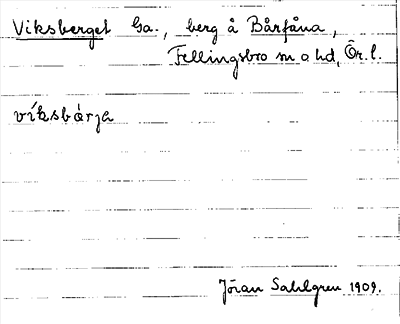 Viksberget Ga., berg å Bårfåna,
Fellingsbro sn o hd, Ör.l.
víksbärja
Jöran Sahlgren 1909.